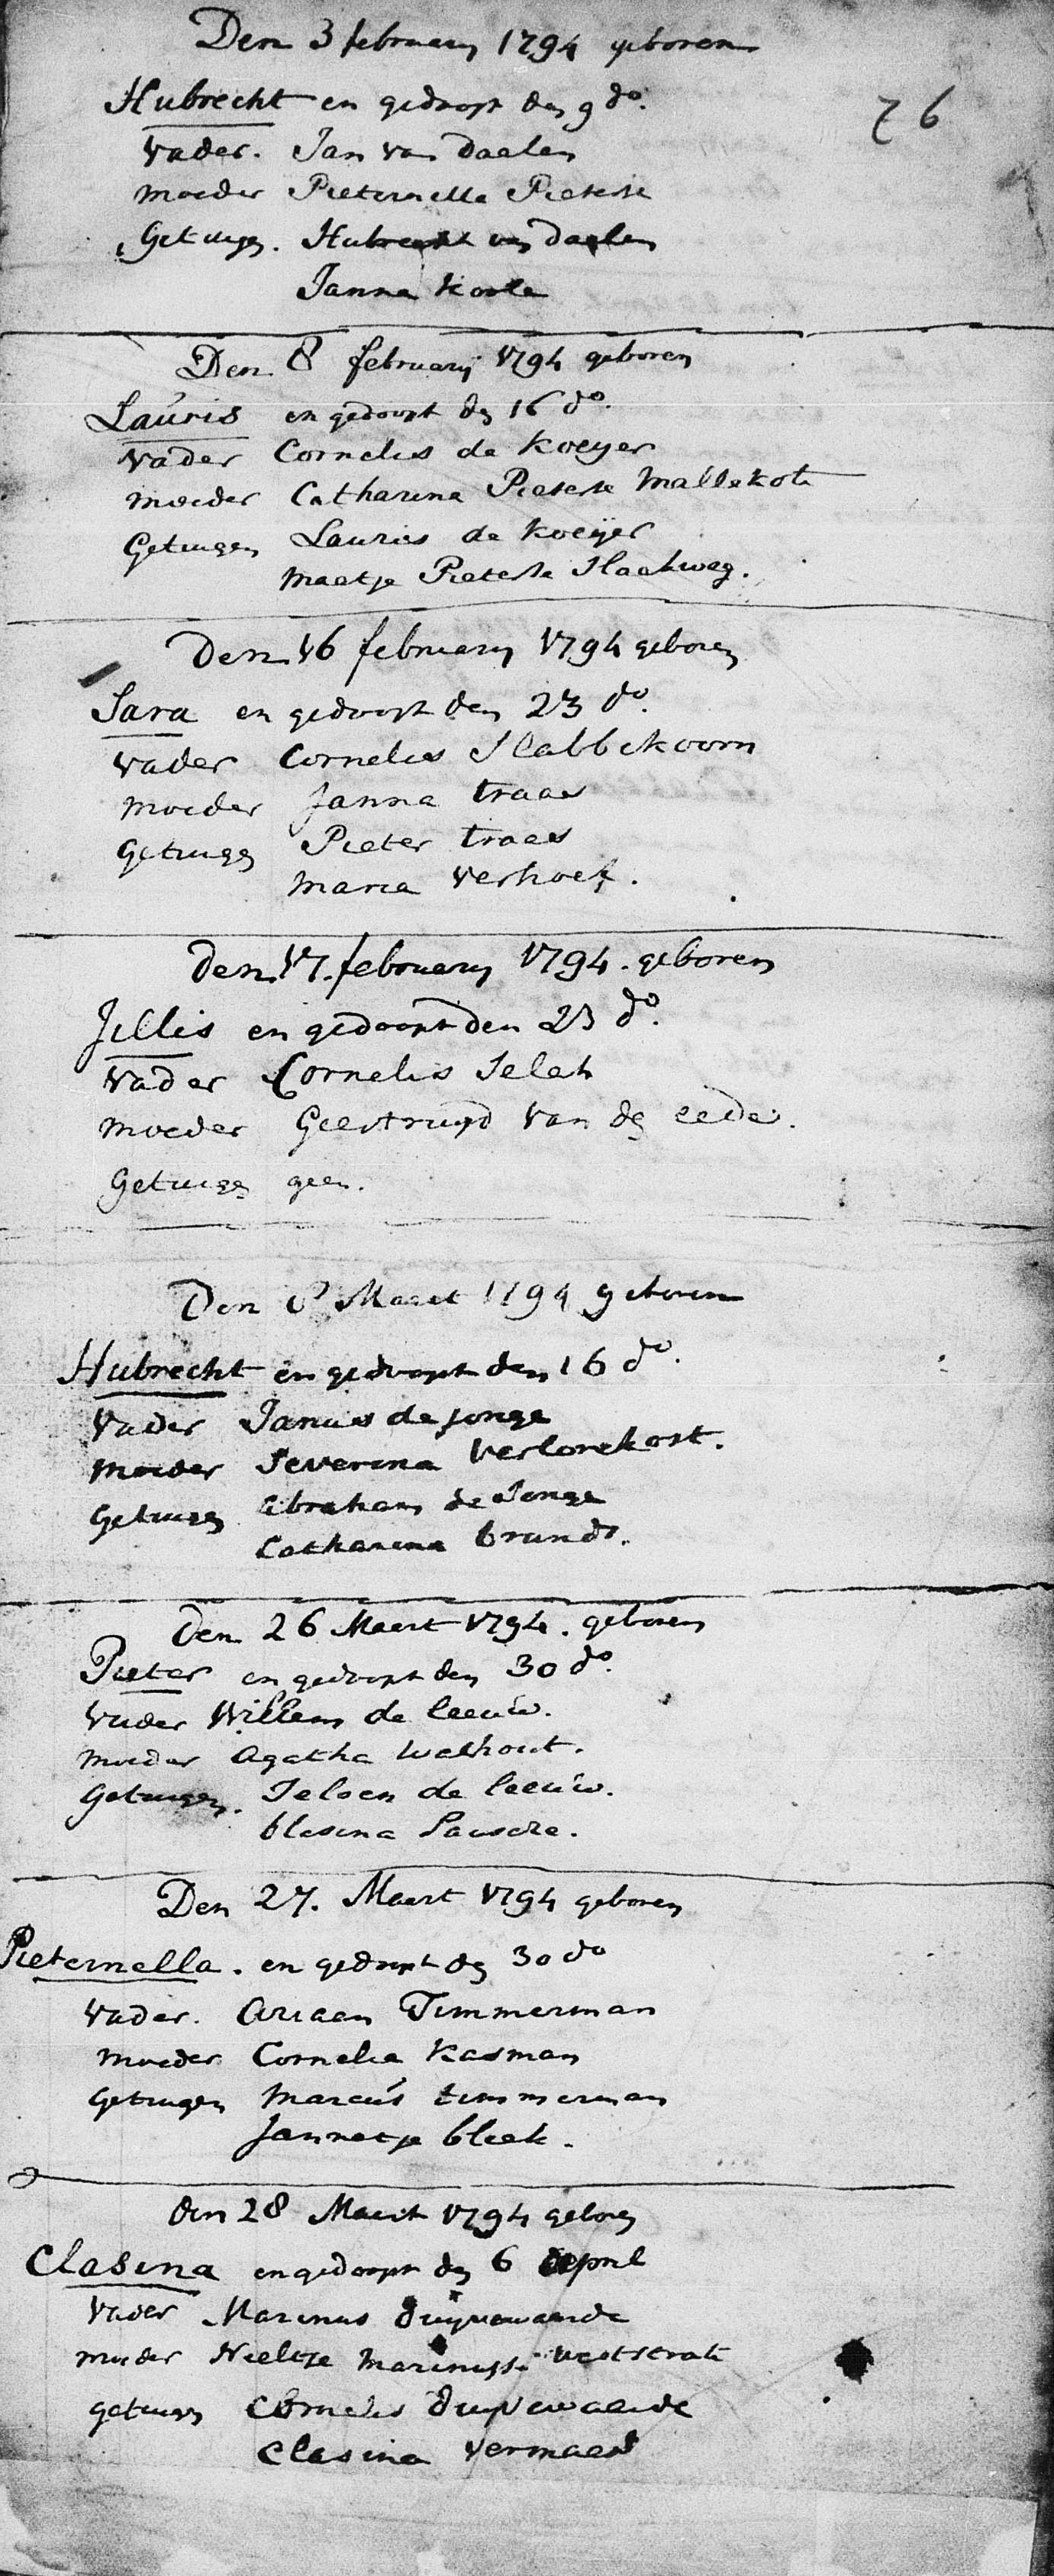 Den 3 february 1794 geboren
76
Hubrecht en gedoopt den 9 do.
Vader. Jan van Daelen
Moeder Pieternella Pieterse
Getuigen. Hubrecht van Daelen
Janna Korle
Den 8 february 1794 geboren
Lauris en gedoopt den 16 do.
Vader Cornelis de Koeyer
Moeder Catharina Pieterse Mallekote
Getuigen Lauris de Koeijer
Maatje Pieterse Slaakweg.
Den 16 february 1794 geboren
Sara en gedoopt den 23 do.
Vader Cornelis Slabbekoorn
Moeder Janna traas
Getuigen Pieter traas
Maria Verhoef.
Den 17. february 1794. geboren
Jillis en gedoopt den 23 do.
Vader Cornelis Selet
Moeder Geertruyd van den eede.
Getuigen geen.
Den 8 Maart 1794 geboren
Hubrecht en gedoopt den 16 do.
Vader Janus de jonge
Moeder Severina Verlorekost.
Getuigen Abraham de Jonge
Catharina brands.
Den 26 Maert 1794. geboren
Pieter en gedoopt den 30 do.
Vader Willem de leeuw.
Moeder Agatha Walhout.
Getuigen. Jeloen de leeuw.
blasina
Den 27. Maert 1794 geboren
Pieternella. en gedoopt den 30 do
Vader. Ariaen Timmerman
Moeder Cornelia Kasman
Getuigen Marcus timmerman
Jannetje bleek.
den 28 Maert 1794 geboren
Clasina en gedoopt den 6 April
Vader Marinus duyvewaarde
Moeder Neeltje Marinisse weststrate
getuigen Cornelis duyvewaerde
Clasina Vermaes